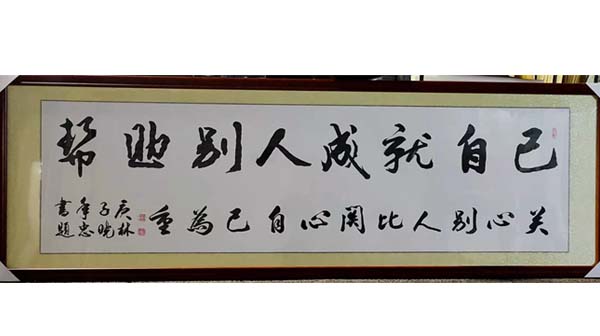 帮助别人成就自己
关心别人比関心自己為重
庚子年書
林晓忠題